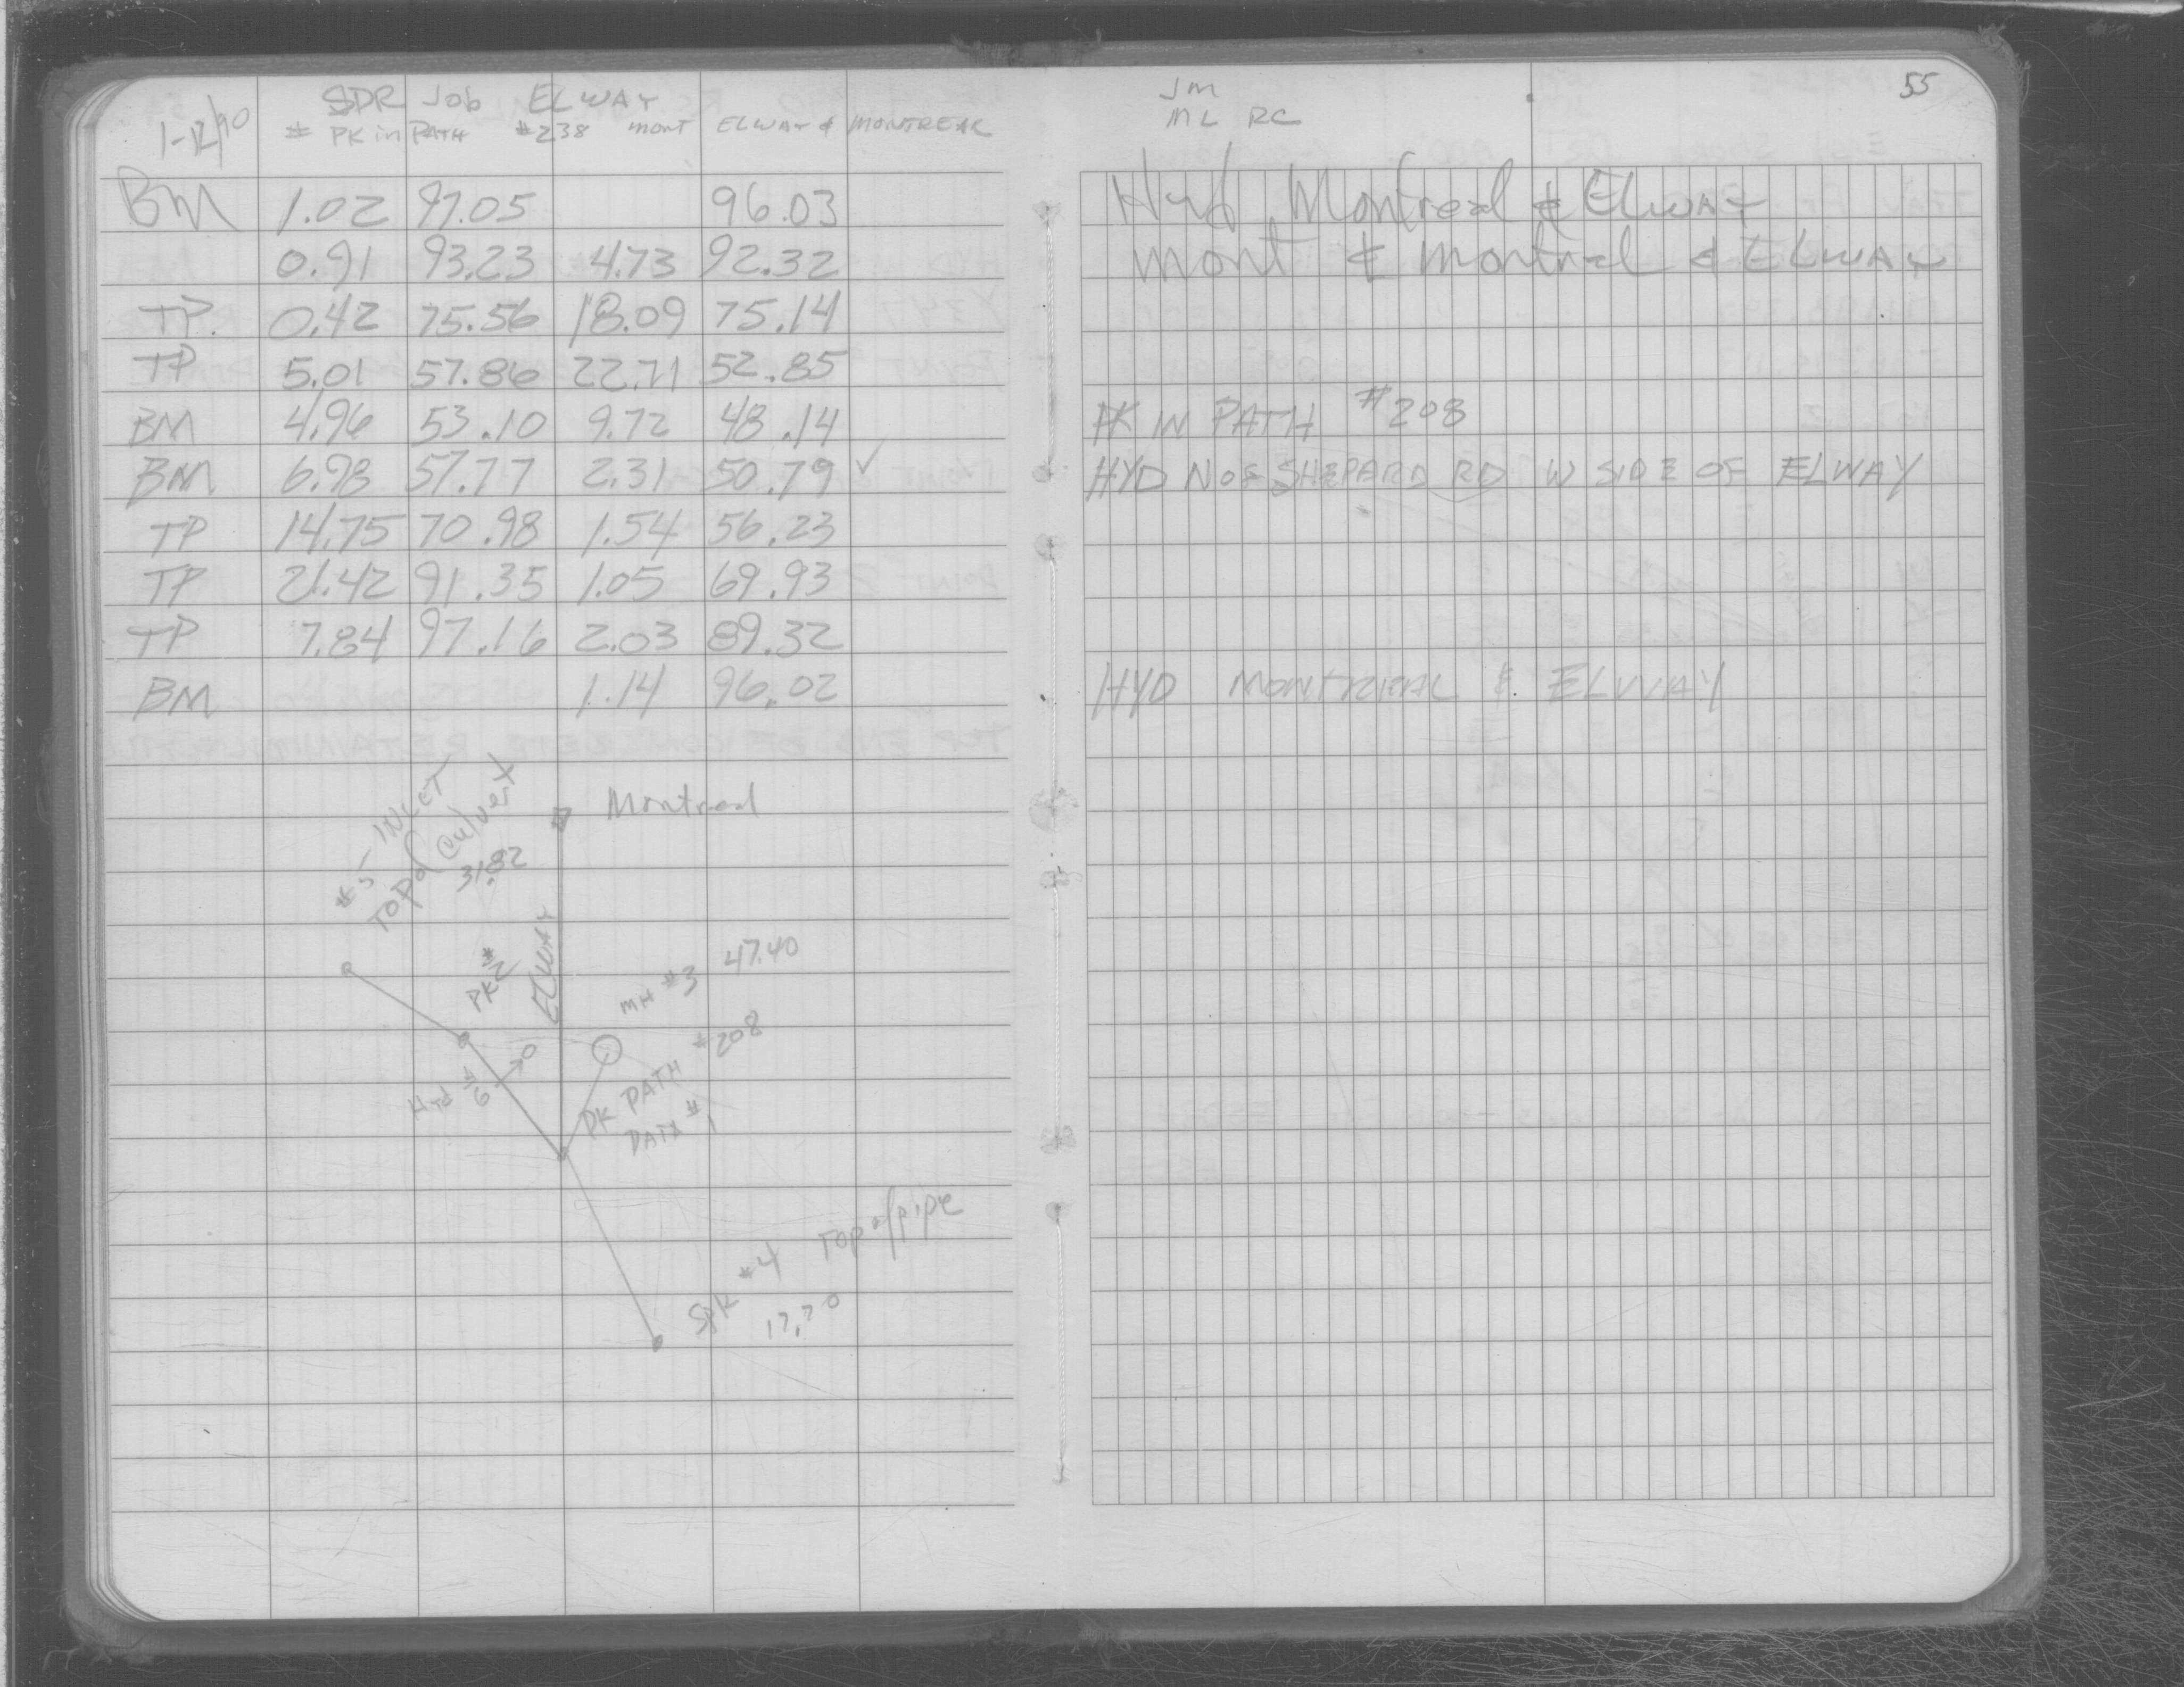 55
1-12/90
SDR Job ELWAY
# PK in PATH #238 mont ELWAY & MONTREAL
JM
ML RC
BM 1.02 97.05 96.03 Hyd Montreal & Elway
0.91 93.23 4.73 92.32 mont ¢ montreal & ELWAY
TP. 0.42 75.56 18.09 75.14
TP 5.01 57.86 22.71 52.85
BM 4.96 53.10 9.72 48.14 PK IN PATH #208
BM 6.98 57.77 2.31 50.79 ✓ HYD N OF SHEPARD RD W SIDE OF ELWAY
TP 14.75 70.98 1.54 56.23
TP 21.42 91.35 1.05 69.93
TP 7.84 97.16 2.03 89.32
BM 1.14 96.02 HYD MONTREAL & ELWAY
#5 INLET
Top of Culvert
31.82
Montreal
ELWAY
PK #2
MH #3 47.40
Hyd #6
PK PATH #208
#1
SPK #4 Top of pipe
17.70